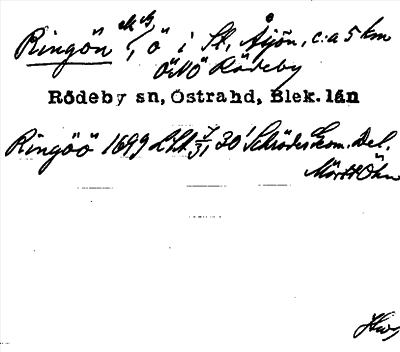 Ringön, ö i St. Åsjön, c:a 5 km
ÖNÖ Rödeby
Rödeby sn, Östra hd, Blek. län
Ringöö 1699 LSA 7/31 30' Schröders Geom. Del.